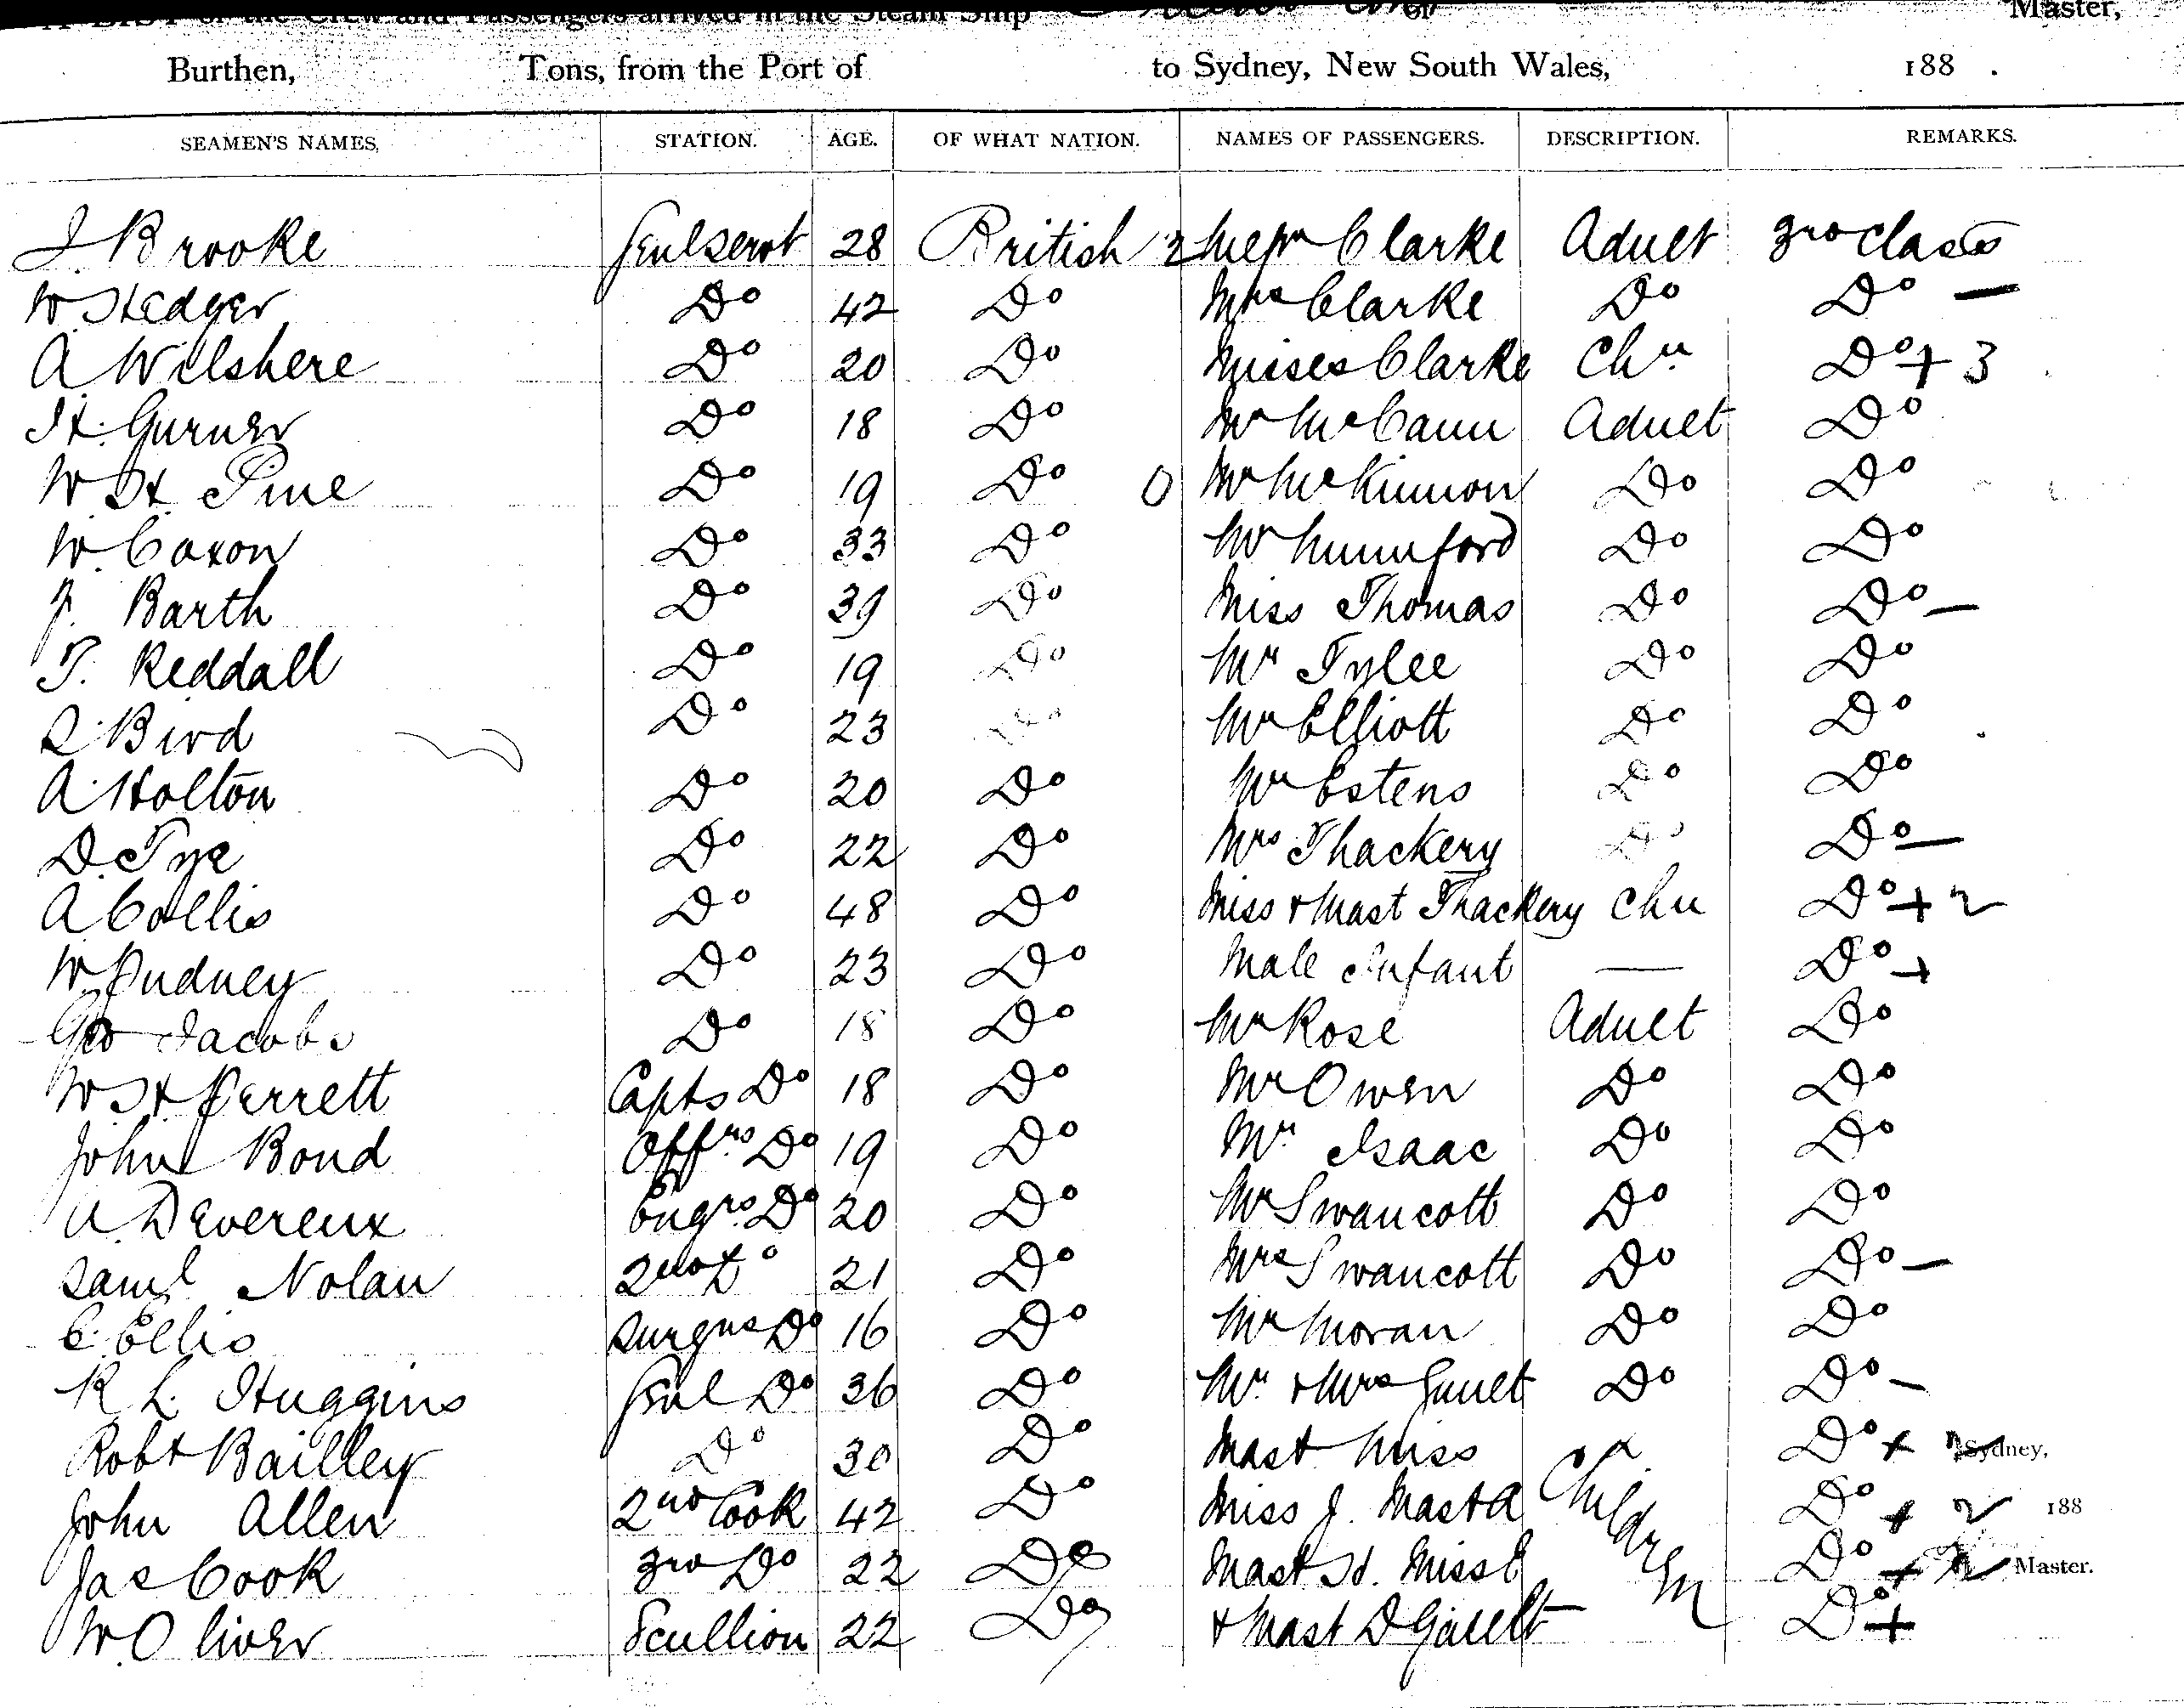 A LIST of the Crew and Passengers arrived in the Steam Ship
Master,
Burthen, Tons, from the Port of to Sydney, New South Wales, 188 .
SEAMEN'S NAMES, STATION. AGE. OF WHAT NATION. NAMES OF PASSENGERS. DESCRIPTION. REMARKS.
J Brooke Genl servt 28 British Clarke Adult 3rd class
W Hedger Do 42 Do Mrs Clarke Do Do —
A Wilshere Do 20 Do Misses Clarke Chn Do + 3
H. Gurner Do 18 Do Mr McCann Adult Do
W H Pine Do 19 Do Mr McKinnon Do Do
W. Coxon Do 33 Do Mr Mumford Do Do
J. Barth Do 39 Do Miss Thomas Do Do —
T. Reddall Do 19 Do Mr Tylee Do Do
Bird Do 23 Do Mr Elliott Do Do
A Holton Do 20 Do Mr Estens Do Do
D. Tye Do 22 Do Mrs Thackery Do Do —
A Collis Do 48 Do Miss & Mast Thackery Chn Do + 2
W Pudney Do 23 Do Male Infant — Do +
Geo Jacobs Do 18 Do Mr Rose Adult Do
W H Perrett Capts Do 18 Do Mr Owen Do Do
John Bond Offrs Do 19 Do Mr Isaac Do Do
Devereux Engrs Do 20 Do Mr Swancott Do Do
Saml Nolan 2nd Do 21 Do Mrs Swancott Do Do —
C. Ellis Surgns Do 16 Do Mr Moran Do Do
R L. Huggins Genl Do 36 Do Mr & Mrs Do Do —
Robt Bailley Do 30 Do Mast Miss Do + 2 Sydney,
John Allen 2nd Cook 42 Do Miss J. Mast A Children Do + 2 188
Jas Cook 3rd Do 22 Do Mast H. Miss E Do + 2 Master.
W. Oliver Scullion 22 Do & Mast D Do +